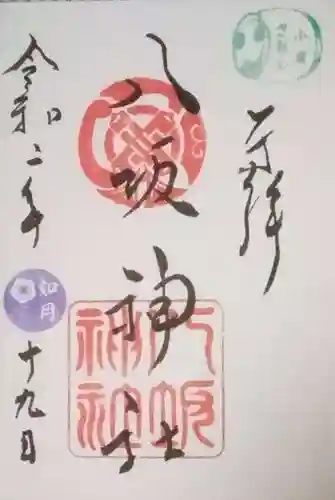 奉拝
八坂神社
八坂
神社
令和二年
如月
十九日